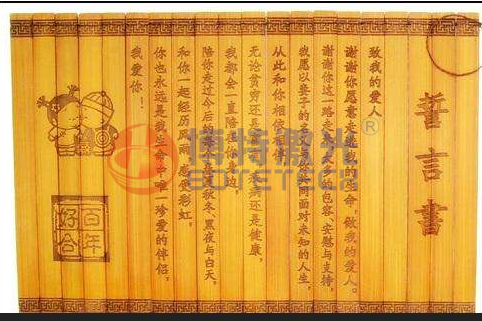 誓言書
致我的爱人
谢谢你愿意走进我的生命,做我的爱人。
谢谢你这一路走来太多的包容、安慰与支持,
我愿以妻子的名义与你共同面对未知的人生,
从此和你相依相伴,
无论贫穷还是 还是健康,
我都会一直陪在你身边,
陪你走过今后的 秋冬、黑夜与白天,
和你一起经历风雨、感受彩虹,
你也永远是我生命中唯一珍爱的伴侣,
我爱你!
百年
好合
博特激光®
BOTETECH